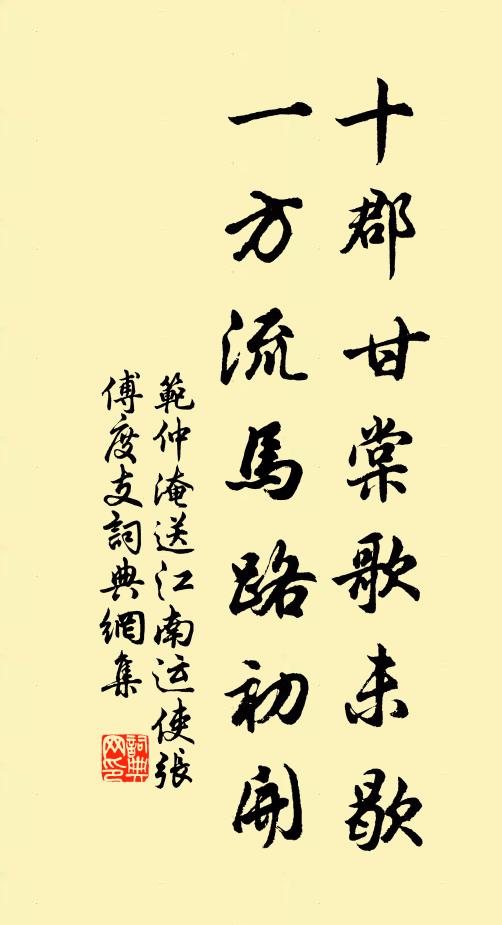 十郡甘棠歌未歇
一方流馬路初開
範仲淹送江南运使張
傅度支詞典網集
詞典网印